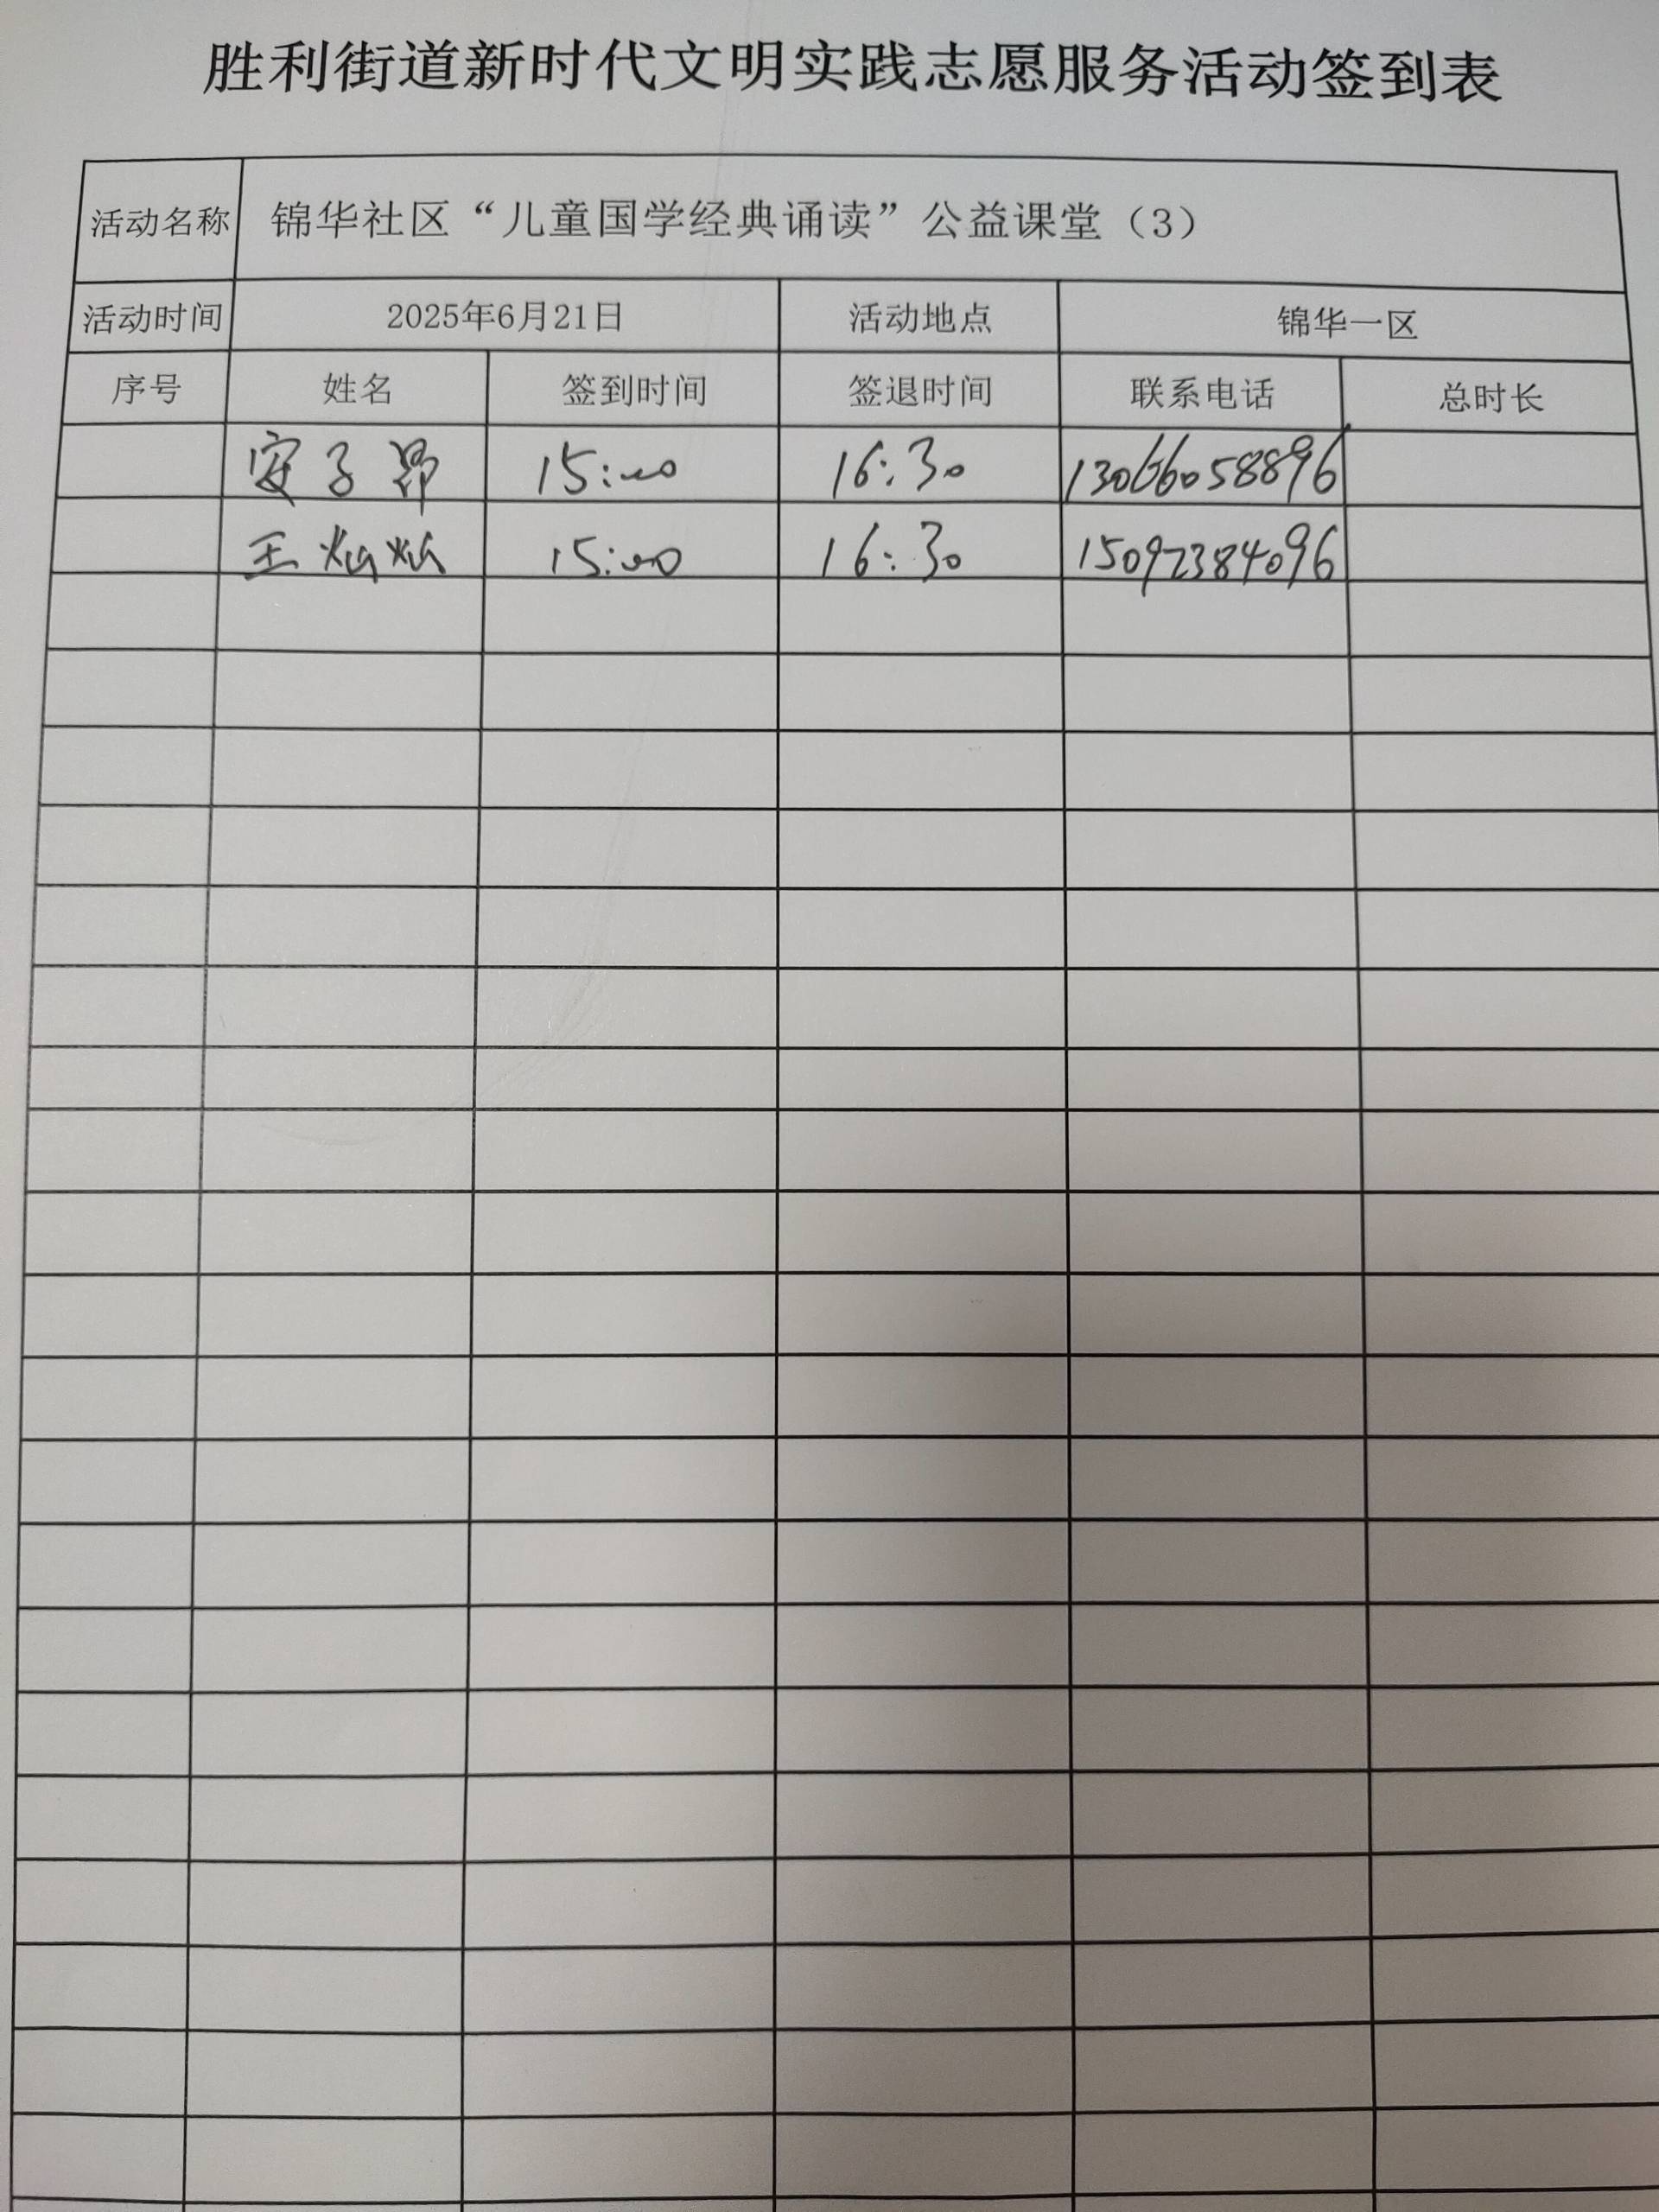 胜利街道新时代文明实践志愿服务活动签到表
活动名称 锦华社区“儿童国学经典诵读”公益课堂（3）
活动时间 2025年6月21日 活动地点 锦华一区
序号 姓名 签到时间 签退时间 联系电话 总时长
安子昂 15:00 16:30 13066058896
王灿灿 15:00 16:30 15092384096